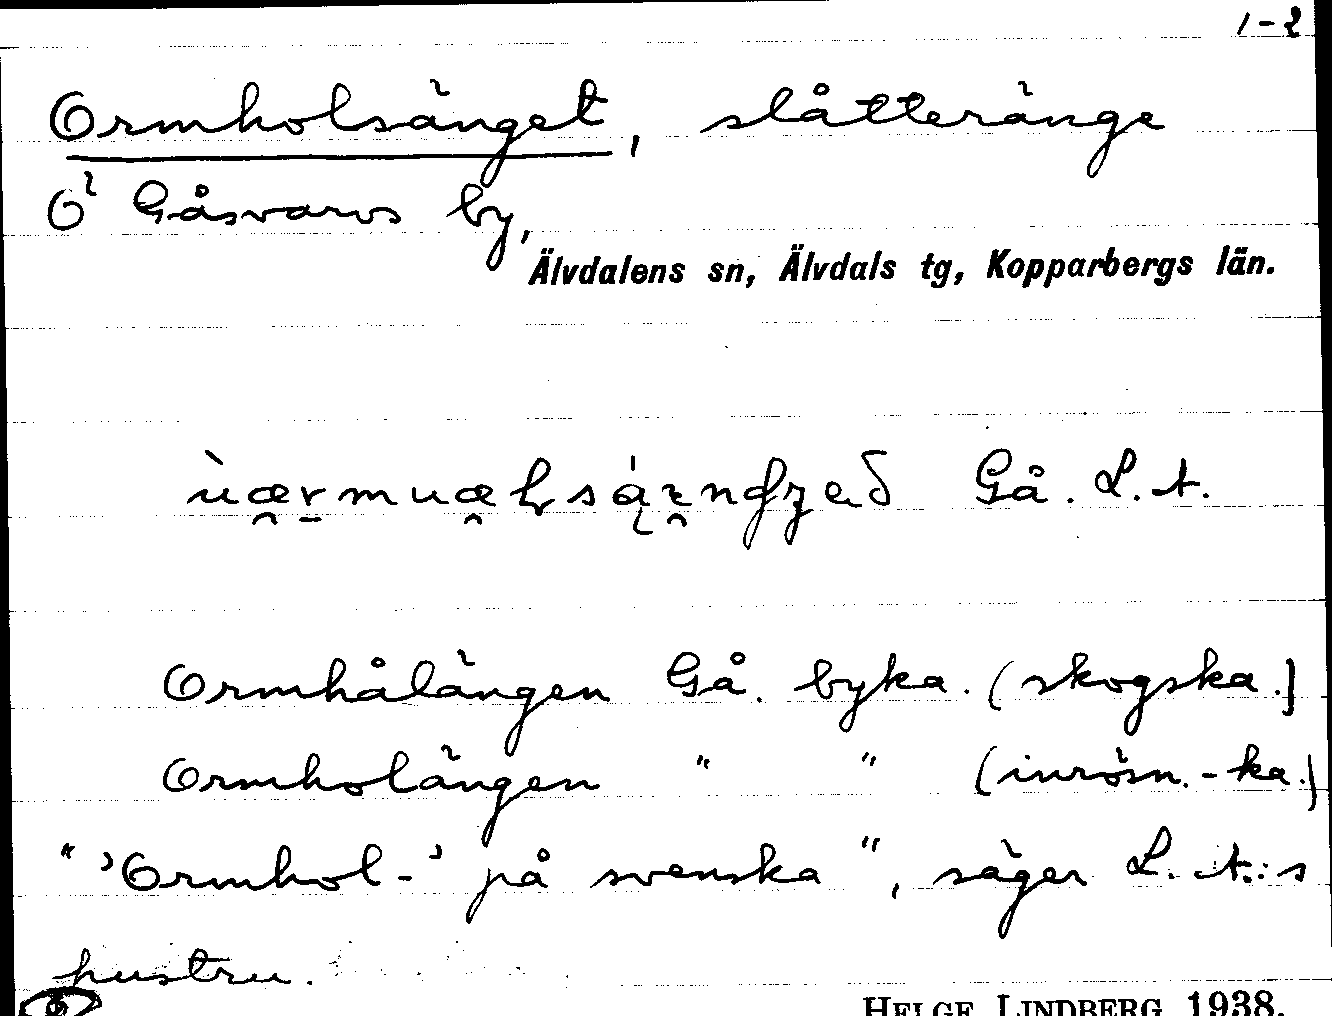 1-2
Ormholsänget, slåtteränge
Ö Gåsvarvs by,
Älvdalens sn, Älvdals tg, Kopparbergs län.
Gå. L. A.
Ormhålängen Gå. byka. (skogska.)
Ormholängen " " (inrösn.-ka.)
" 'Ormhol-' på svenska ", säger L. A.:s
hustru.
HELGE LINDBERG 1938.